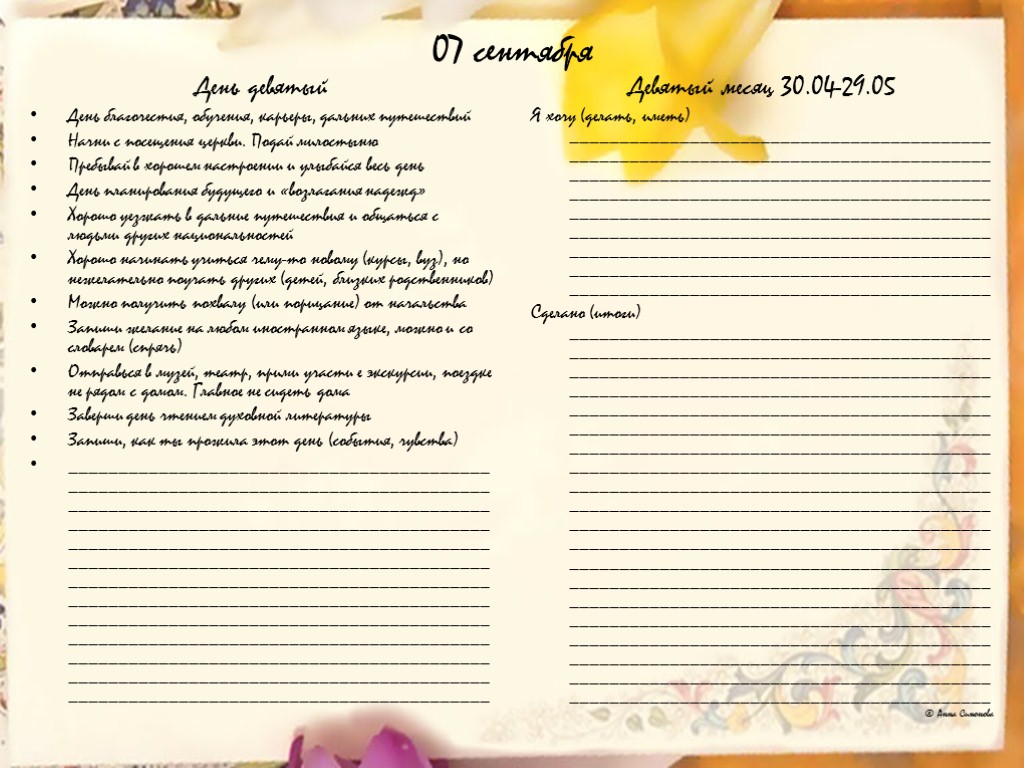 07 сентября
День девятый
• День благочестия, обучения, карьеры, дальних путешествий
• Начни с посещения церкви. Подай милостыню
• Пребывай в хорошем настроении и улыбайся весь день
• День планирования будущего и «возлагания надежд»
• Хорошо уезжать в дальние путешествия и общаться с
людьми других национальностей
• Хорошо начинать учиться чему-то новому (курсы, вуз), но
нежелательно поучать других (детей, близких родственников)
• Можно получить похвалу (или порицание) от начальства
• Запиши желание на любом иностранном языке, можно и со
словарем (спрячь)
• Отправься в музей, театр, прими участи е экскурсии, поездке
не рядом с домом. Главное не сидеть дома
• Заверши день чтением духовной литературы
• Запиши, как ты прожила этот день (события, чувства)
Девятый месяц 30.04-29.05
Я хочу (делать, иметь)
Сделано (итоги)
© Анна Симонова